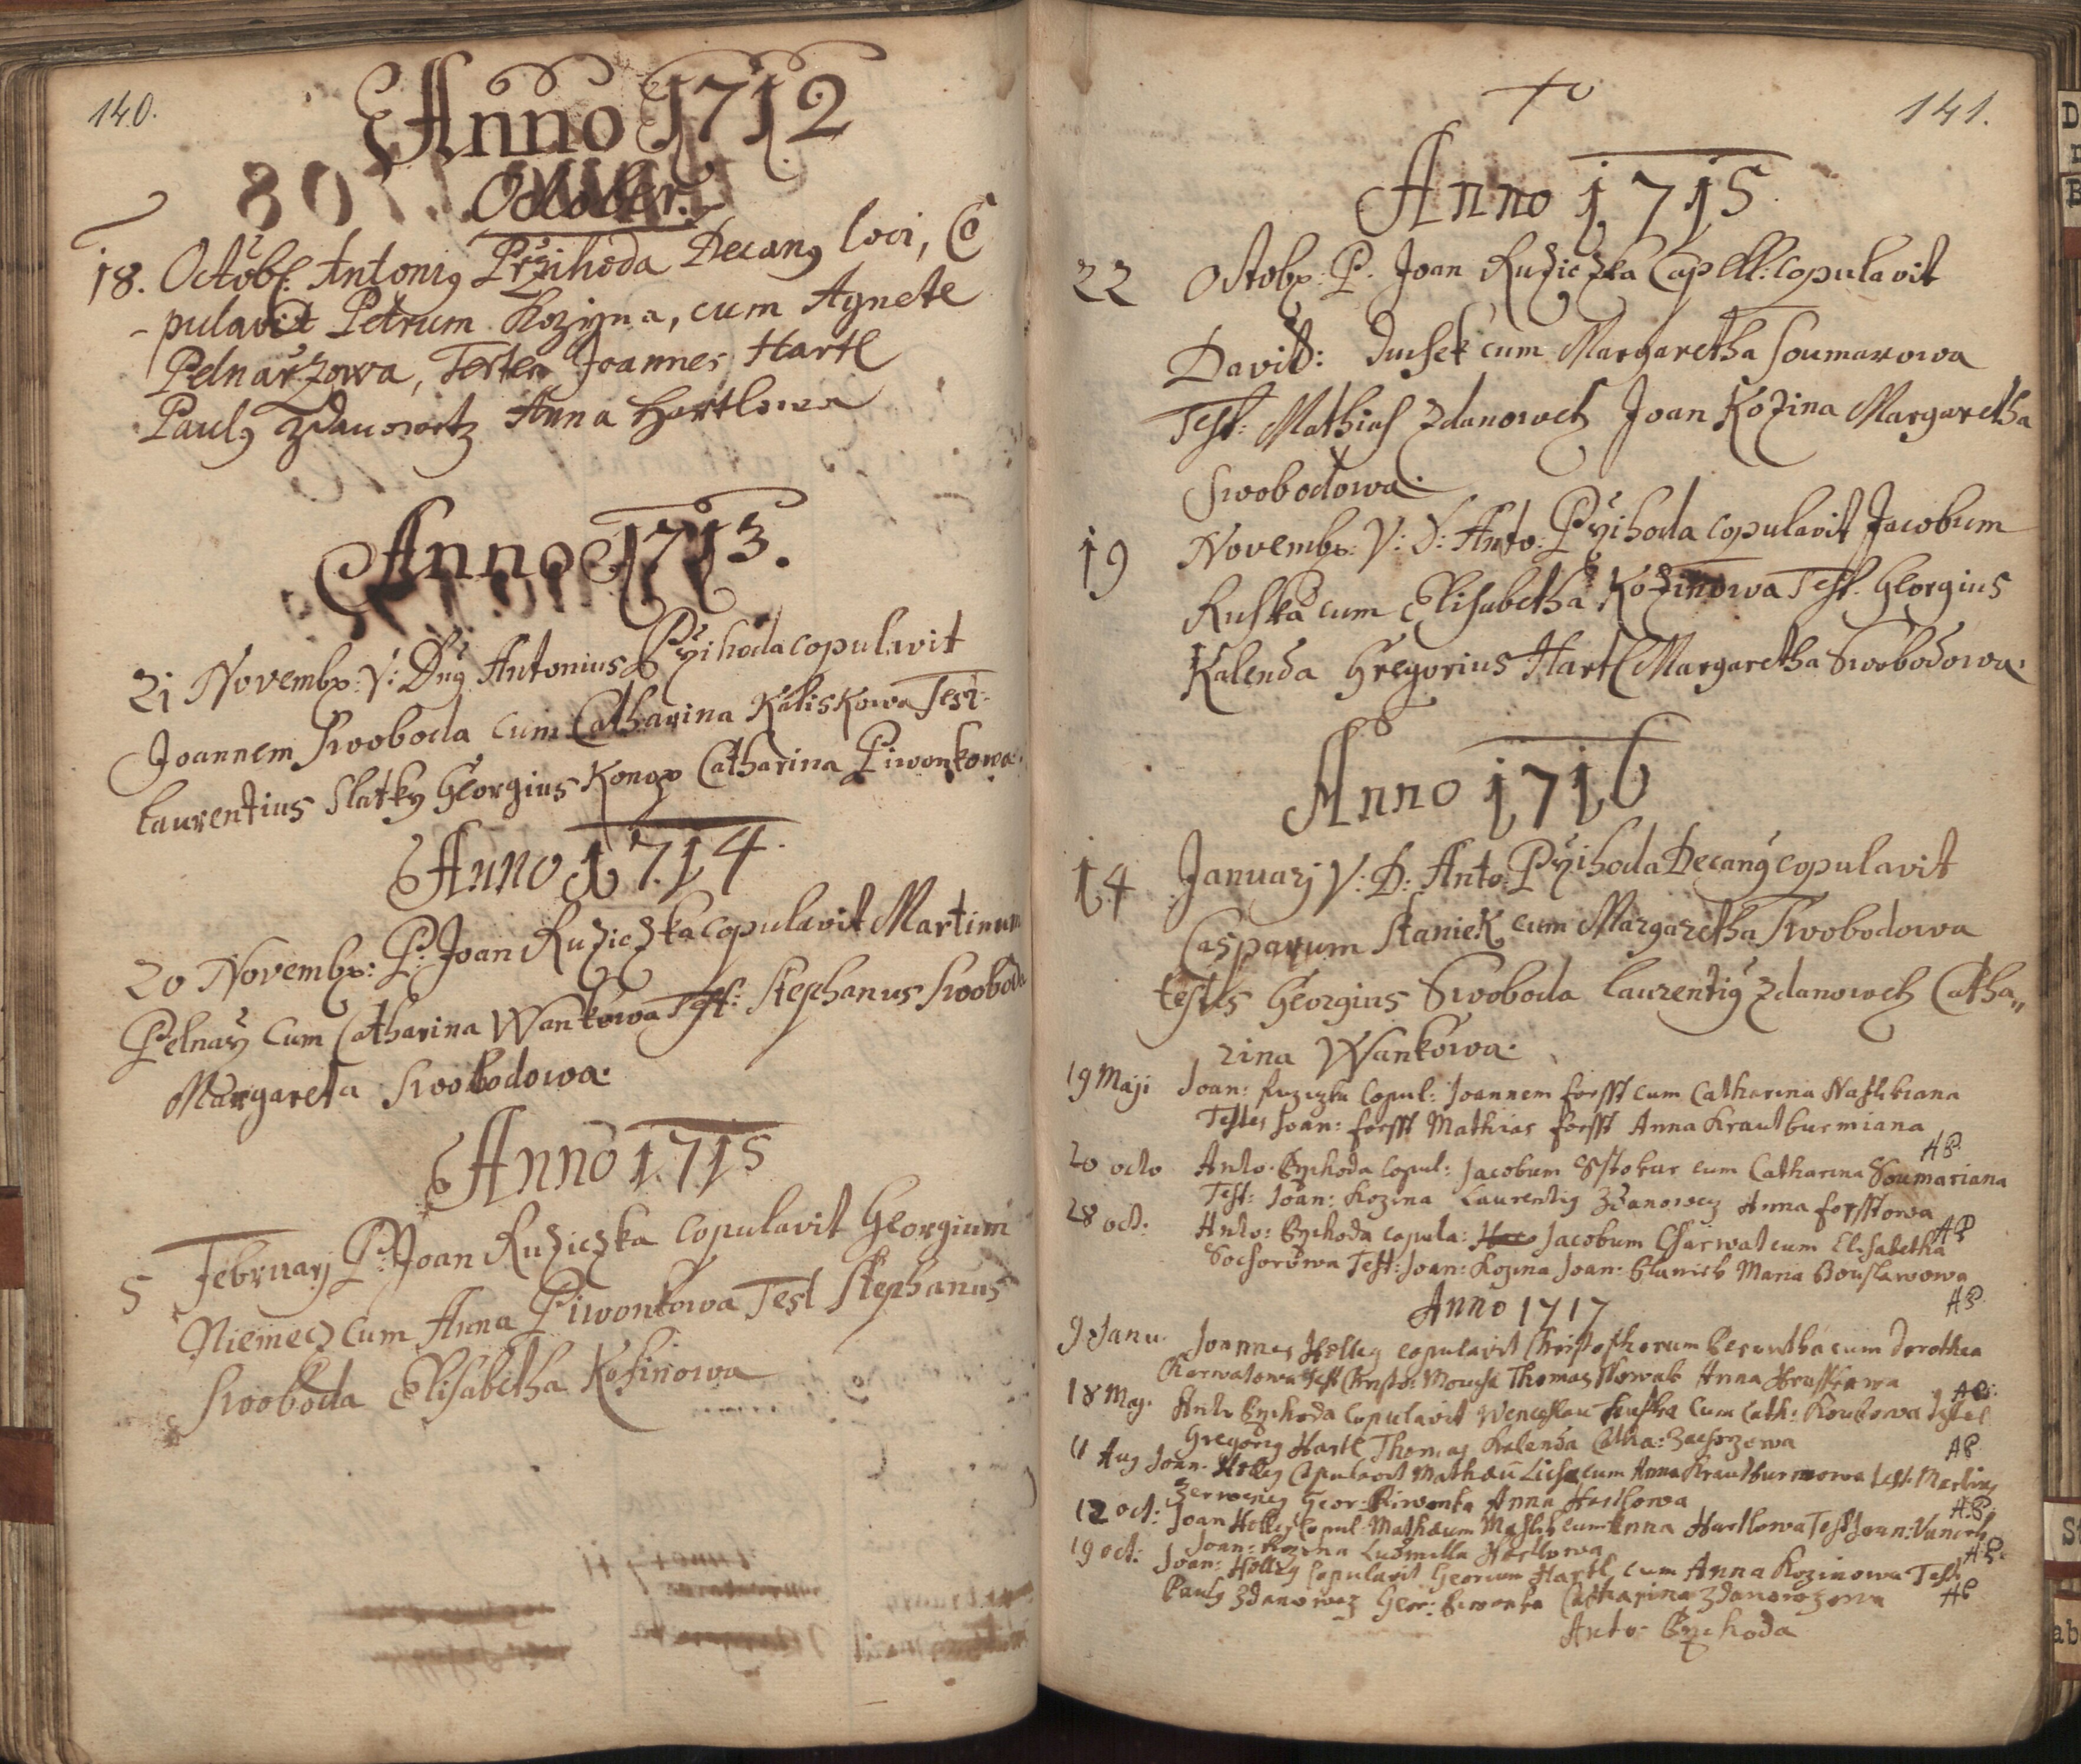 140.
Anno 1712
October.
18. Octobr. Antonig Pržihoda Decang loci, Co
- pulavit Petrum Kozijna, cum Agnete
Pelnaržowa, Testes Joannes Hartl
Paulg Zdanowetz Anna Hartlowa
Anno 1713.
21 Novembr: V: Dng Antonius Pržihoda copulavit
Joannem Swoboda cum Catharina Kaliskowa Test:
Laurentius Slatky Georgius Konop Catharina Piwonkowa.
Anno 1714.
20 Novembr: P: Joan Ruziczka copulavit Martinum
Pelnarz cum Catharina Wankowa Test: Stephanus Swoboda
Margareta Swobodowa.
Anno 1715
5 Februarj P: Joan Ruziczka copulavit Georgium
Niemecz cum Anna Piwonkowa Test Stephanus
Swoboda Elisabetha Kosinowa
141.
Anno 1715
22 Octobr: P. Joan Ruziczka Capell: copulavit
David: Dusek cum Margaretha Soumarowa
Test: Mathias Zdanowetz Joan Kozina Margaretha
Swobodowa.
19 Novembr: V: D: Anto: Pržihoda copulavit Jacobum
Ruska cum Elisabetha Kozinowa Test. Georgius
Kalenda Gregorius Hartl Margaretha Swobodowa.
Anno 1716
14 Januarj V: D: Anto: Pržihoda Decang copulavit
Casparum Staniek cum Margaretha Swobodowa
testes Georgius Swoboda Laurentig Zdanowetz Catha„
rina Wankowa.
19 Maji Joan: Ruziczka Copul: Joannem Forsst cum Catharina
Testes Joan: Forsst Mathias Forsst Anna Krautburmiana
AP.
20 octo Anto. Pržihoda Copul: Jacobum cum Catharina Soumariana
Test: Joan: Kozina Laurentig Zdanowecz Anna Forsstowa
AP
28 oct: Anto: Pržihoda copula: Jacobum Charwat cum Elisabetha
Sochorowa Test: Joan: Kozina Joan: Staniek Maria
AP.
Anno 1717
9 Janu. Joannes Holley copulavit Christophorum cum Dorothea
Charwatowa Test Christo: Thomas Nowak Anna
AP.
18 Maj. Anto Pržihoda Copulavit Wenceslau Ruska Cum Cath:
Gregorig Hartl Thomas Kalenda Catha:
AP.
11 Aug Joan. Holley Copulavit cum Anna Krautburmowa test. Marting
Geor: Piwonka Anna Hartlowa
AP.
12 oct: Joan Holley Copul: Mathaeum cum Anna Hartlowa Test Joan:
Joan: Kozina Ludmilla Hartlowa
AP.
19 oct: Joan: Holley Copulavit Georium Hartl, cum Anna Kozinowa Test
Paulg Zdanowecz Geor: Piwonka Catharina
AP
Anto: Pržihoda